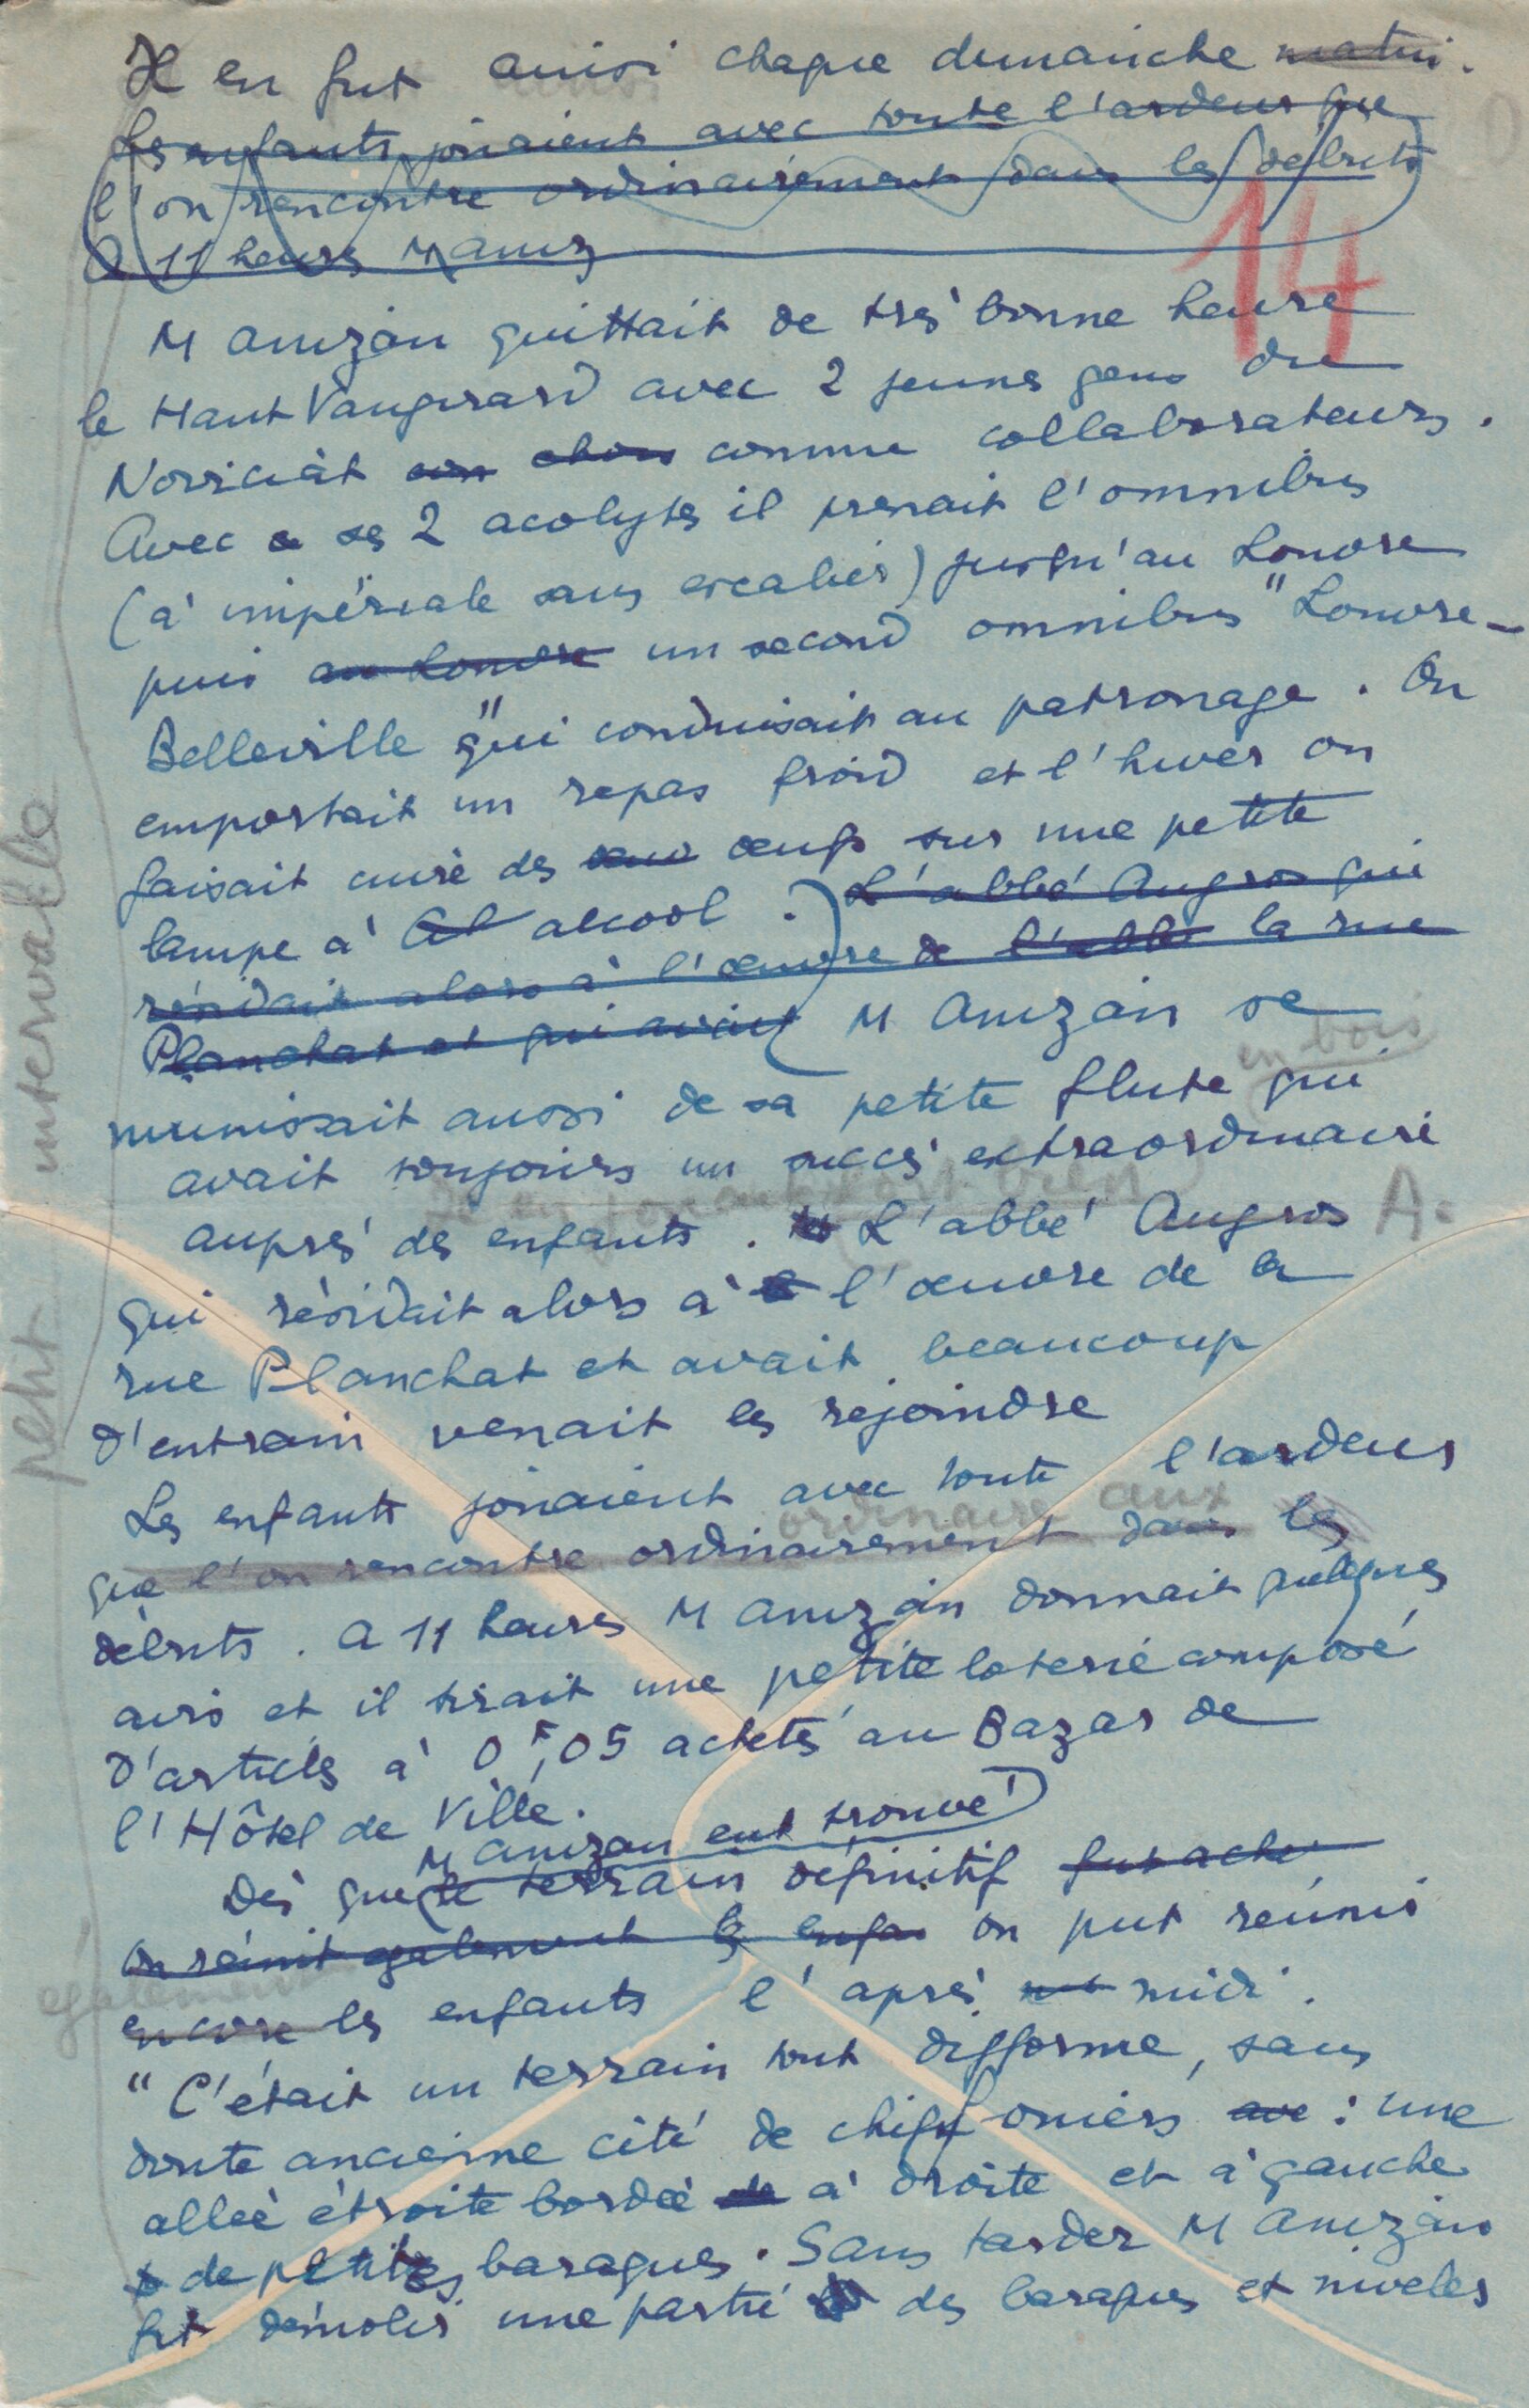 Il en fut ainsi chaque dimanche matin.
Les enfants jouaient avec toute l'ardeur que
l'on rencontre ordinairement dans les débuts
A 11 heures M Aniz
14
M Anizan quittait de très bonne heure
le Haut Vaugirard avec 2 jeunes gens du
Noviciat comme collaborateurs.
Avec ses 2 acolytes il prenait l'omnibus
(à impériale sans escalier) jusqu'au Louvre
puis au Louvre un second omnibus "Louvre-
Belleville" qui conduisait au patronage. On
emportait un repas froid et l'hiver on
faisait cuire des oeufs sur une petite
lampe à alcool. L'abbé Augros qui
résidait alors à l'oeuvre de l'abbé la rue
Planchat et qui avait M Anizan se
en bois
munissait aussi de sa petite flute qui
avait toujours un succès extraordinaire
auprès des enfants. L'abbé Augros A.
qui résidait alors à l'oeuvre de la
rue Planchat et avait beaucoup
d'entrain venait les rejoindre
Les enfants jouaient avec toute l'ardeur
ordinaire aux
que l'on rencontre ordinairement dans les
débuts. A 11 heures M Anizan donnait quelques
avis et il tirait une petite loterie composé
d'articles à 0F,05 achetés au Bazar de
l'Hôtel de Ville.
M Anizan eut trouvé
Dès que le terrain définitif fut acheté
on réunit également les enfan on put réunir
également
encore les enfants l'après midi.
"C'était un terrain tout difforme, sans
doute ancienne cité de chiffoniers ave : une
allée étroite bordée de à droite et à gauche
de petites baraques. Sans tarder M Anizan
fit démolir une partie des baraques et niveler
petit intervalle